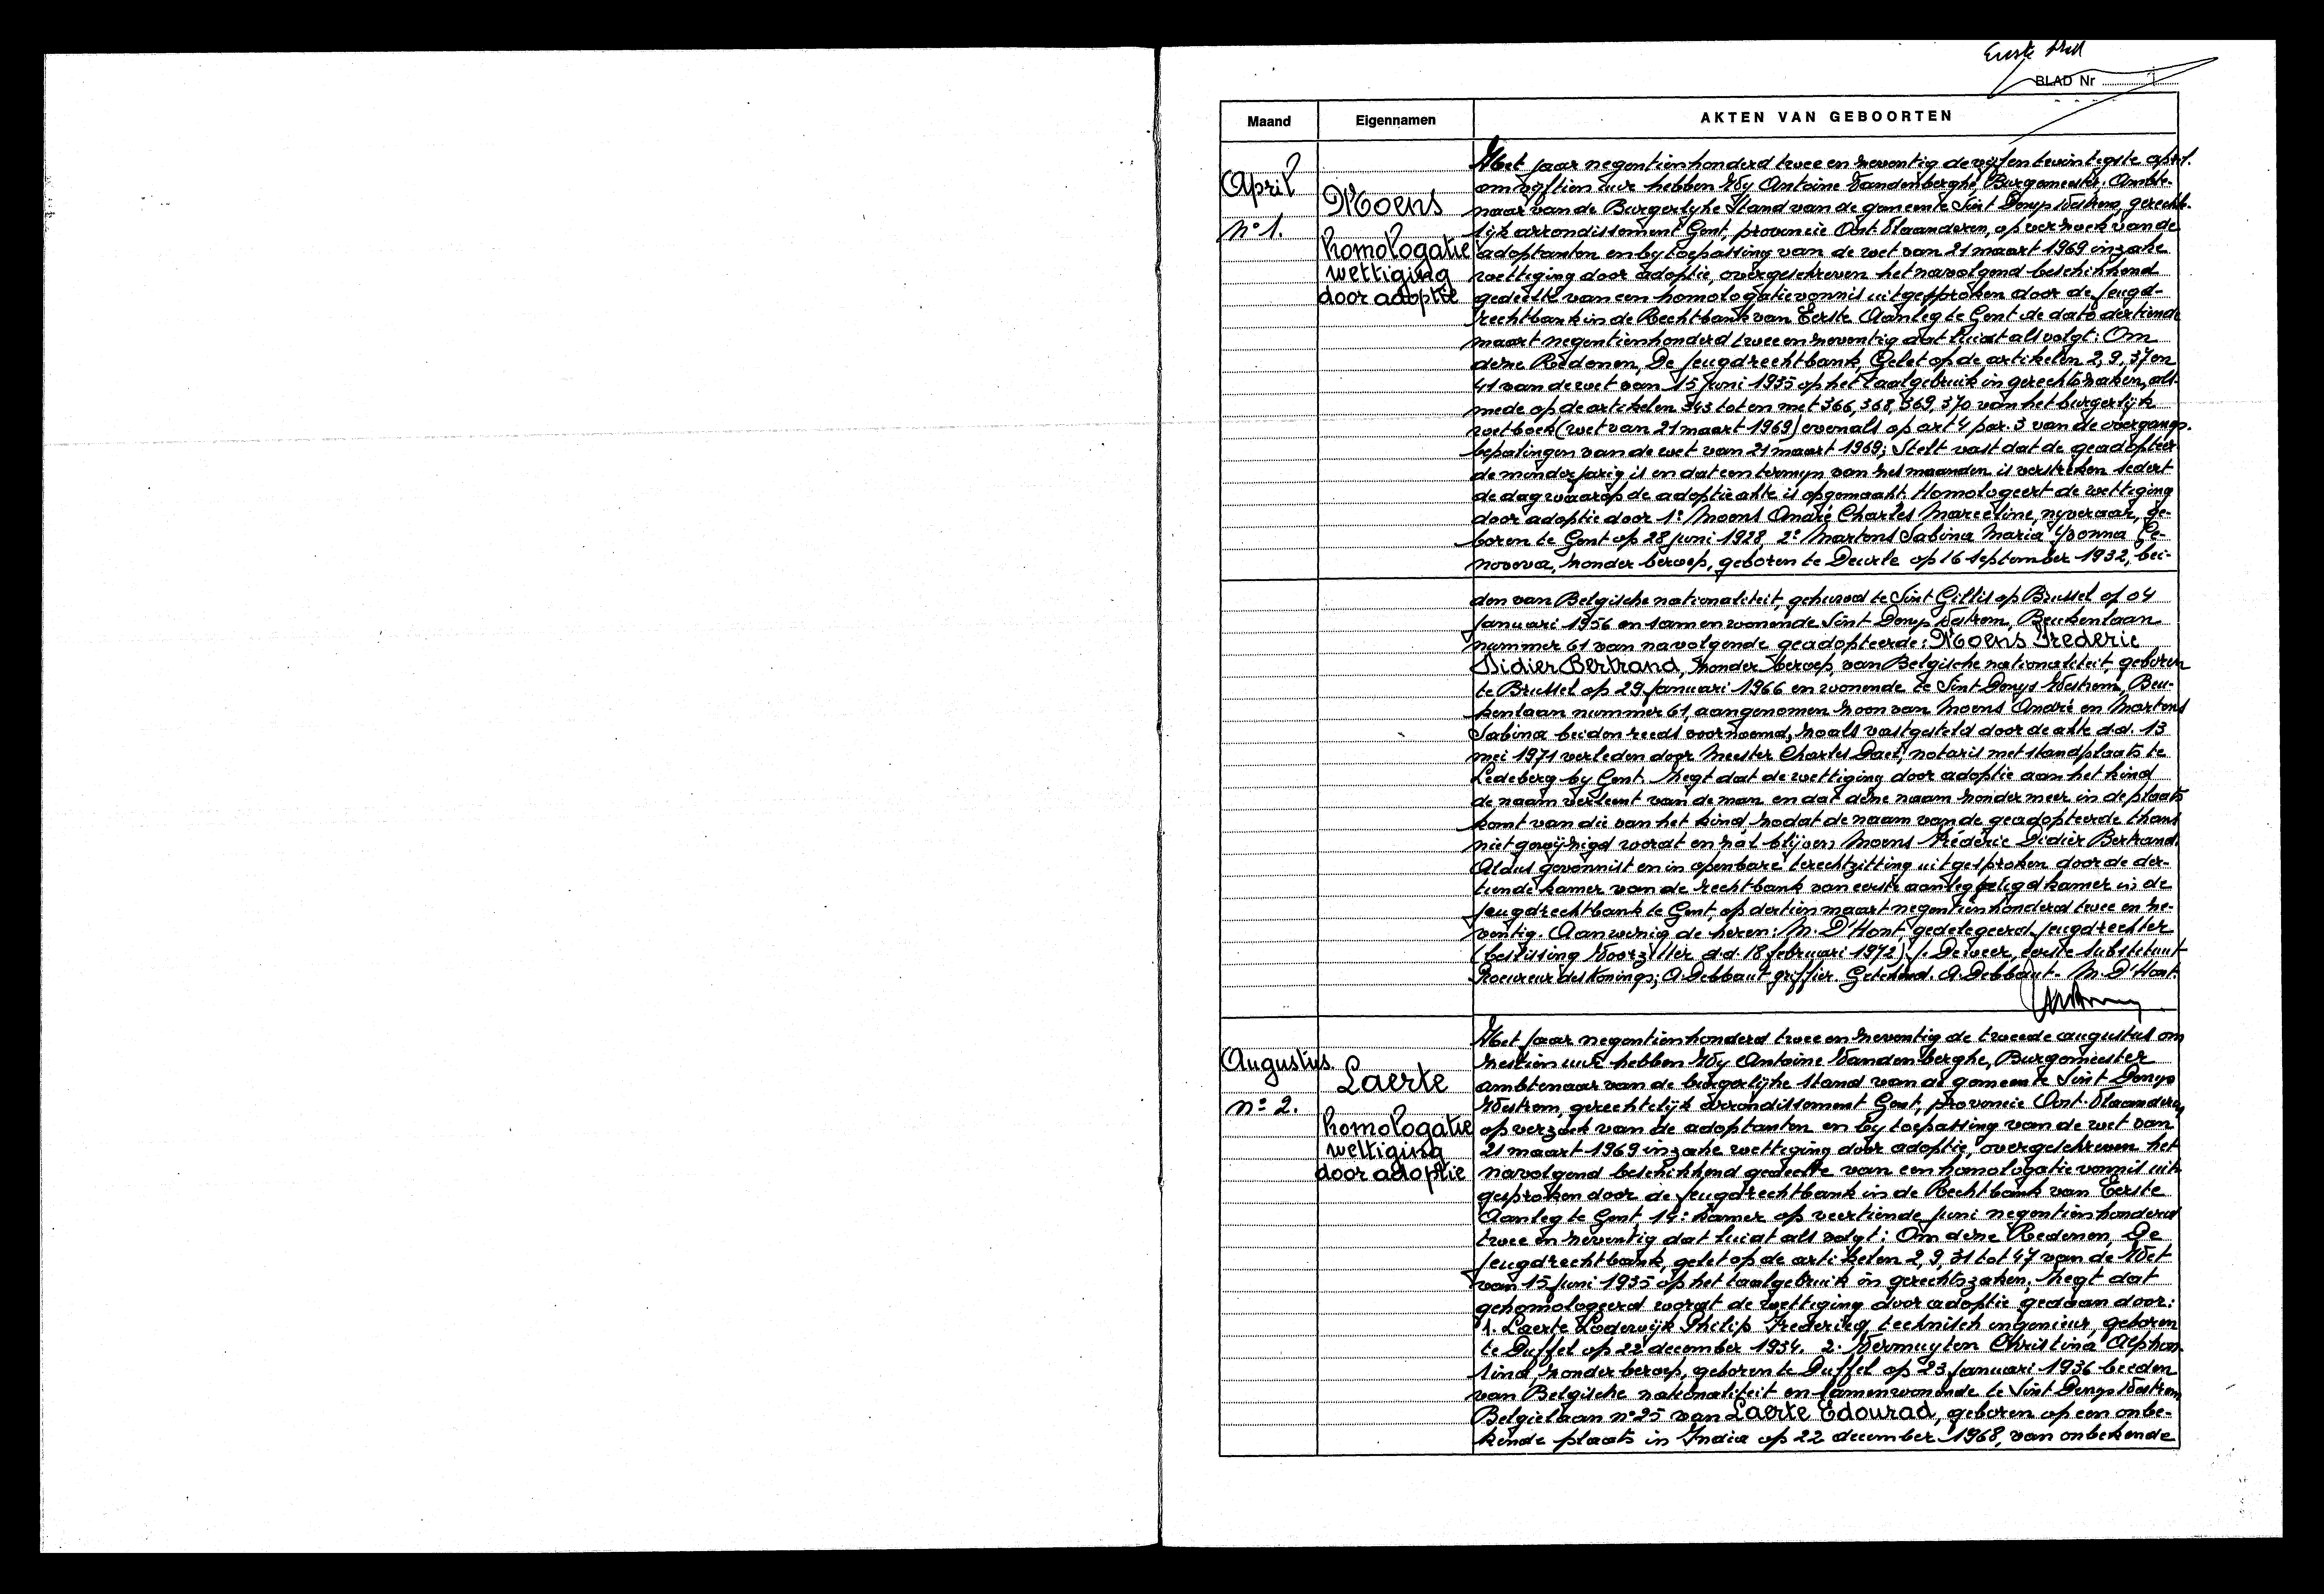 Eerste blad
BLAD Nr 1
Maand Eigennamen AKTEN VAN GEBOORTEN
April
n° 1.
Moens
homologatie
wettiging
door adoptie
Het jaar negentienhonderd twee en zeventig de vijfentwintigste april.
om vijftien uur hebben Wy Antoine Vandenberghe, Burgemeester, Ambte-
naar van de Burgerlyke Stand van de gemeente Sint Denys Westrem, gerechte-
lijk arrondissement Gent, provincie Oost Vlaanderen, op verzoek van de
adoptanten en by toepassing van de wet van 21 maart 1969 inzake
wettiging door adoptie, overgeschreven het navolgend beschikkend
gedeelte van een homologatievonnis uitgesproken door de Jeugd-
rechtbank in de Rechtbank van Eerste Aanleg te Gent de dato dertiende
maart negentienhonderd twee en zeventig dat luidt als volgt: Om
deze Redenen, De Jeugdrechtbank, Gelet op de artikelen 2, 9, 37 en
41 van de wet van 15 Juni 1935 op het taalgebruik in gerechtszaken, als-
mede op de artikelen 343 tot en met 366, 368, 369, 370 van het burgerlijk
wetboek (wet van 21 maart 1969) evenals op art 4 par. 3 van de overgangs-
bepalingen van de wet van 21 maart 1969; Stelt vast dat de geadopteer-
de minderjarig is en dat een termyn van zes maanden is verstreken sedert
de dag waarop de adoptieakte is opgemaakt. Homologeert de wettiging
door adoptie door 1° Moens André Charles Marceline, nyveraar, ge-
boren te Gent op 28 Juni 1928, 2° Martens Sabina Maria Yvonna Ge-
noveva, zonder beroep, geboren te Deurle op 16 september 1932, bei-
den van Belgische nationaliteit, gehuwd te Sint Gillis op Brussel op 04
Januari 1956 en samenwonende Sint Denys Westrem, Beukenlaan
nummer 61 van navolgende geadopteerde: Moens Frederic
Didier Bertrand, zonder beroep, van Belgische nationaliteit, geboren
te Brussel op 29 Januari 1966 en wonende te Sint Denys Westrem, Beu-
kenlaan nummer 61, aangenomen zoon van Moens André en Martens
Sabina beiden reeds voornoemd, zoals vastgesteld door de akte d.d. 13
mei 1971 verleden door Meester Charles Daet, notaris met standplaats te
Ledeberg by Gent. Zegt dat de wettiging door adoptie aan het kind
de naam verleent van de man en dat deze naam zonder meer in de plaats
komt van die van het kind zodat de naam van de geadopteerde thans
niet gewijzigd wordt en zal blijven Moens Fréderic Didier Bertrand.
Aldus gevonnist en in openbare terechtzitting uitgesproken door de der-
tiende kamer van de rechtbank van eerste aanleg zetigd kamer in de
Jeugdrechtbank te Gent, op dertien maart negentienhonderd twee en ze-
ventig. Aanwezig de heren: M. D'Hont, gedelegeerd Jeugdrechter
(beslissing Voorzitter d.d. 18 februari 1972) J. Deweer, eerste substituut
Procureur des Konings; A. Debbaut griffier. Getekend. A. Debbaut - M. D'Hont.
Augustus.
n° 2.
Laerte
homologatie
wettiging
door adoptie
Het Jaar negentienhonderd twee en zeventig de tweede augustus om
zestien uur hebben Wy Antoine Vandenberghe, Burgemeester
ambtenaar van de burgerlijke stand van de gemeente Sint Denys
Westrem, gerechtelijk arrondissement Gent, provincie Oost-Vlaanderen,
op verzoek van de adoptanten en by toepassing van de wet van
21 maart 1969 inzake wettiging door adoptie, overgeschreven het
navolgend beschikkend gedeelte van een homologatievonnis uit-
gesproken door de Jeugdrechtbank in de Rechtbank van Eerste
Aanleg te Gent, 14e kamer op veertiende Juni negentienhonderd
twee en zeventig dat luidt als volgt: Om deze Redenen, De
Jeugdrechtbank, gelet op de artikelen 2, 9, 31 tot 47 van de Wet
van 15 Juni 1935 op het taalgebruik in gerechtszaken, Zegt dat
gehomologeerd wordt de wettiging door adoptie gedaan door:
1. Laerte Lodewijk Philip Frederik, technisch ingenieur, geboren
te Duffel op 22 december 1934. 2. Vermuyten Christina Alphon-
sina, zonder beroep, geboren te Duffel op 23 Januari 1936 beiden
van Belgische nationaliteit en samenwonende te Sint Denys Westrem
Belgiëlaan n° 25 van Laerte Edourad, geboren op een onbe-
kende plaats in India op 22 december 1968, van onbekende